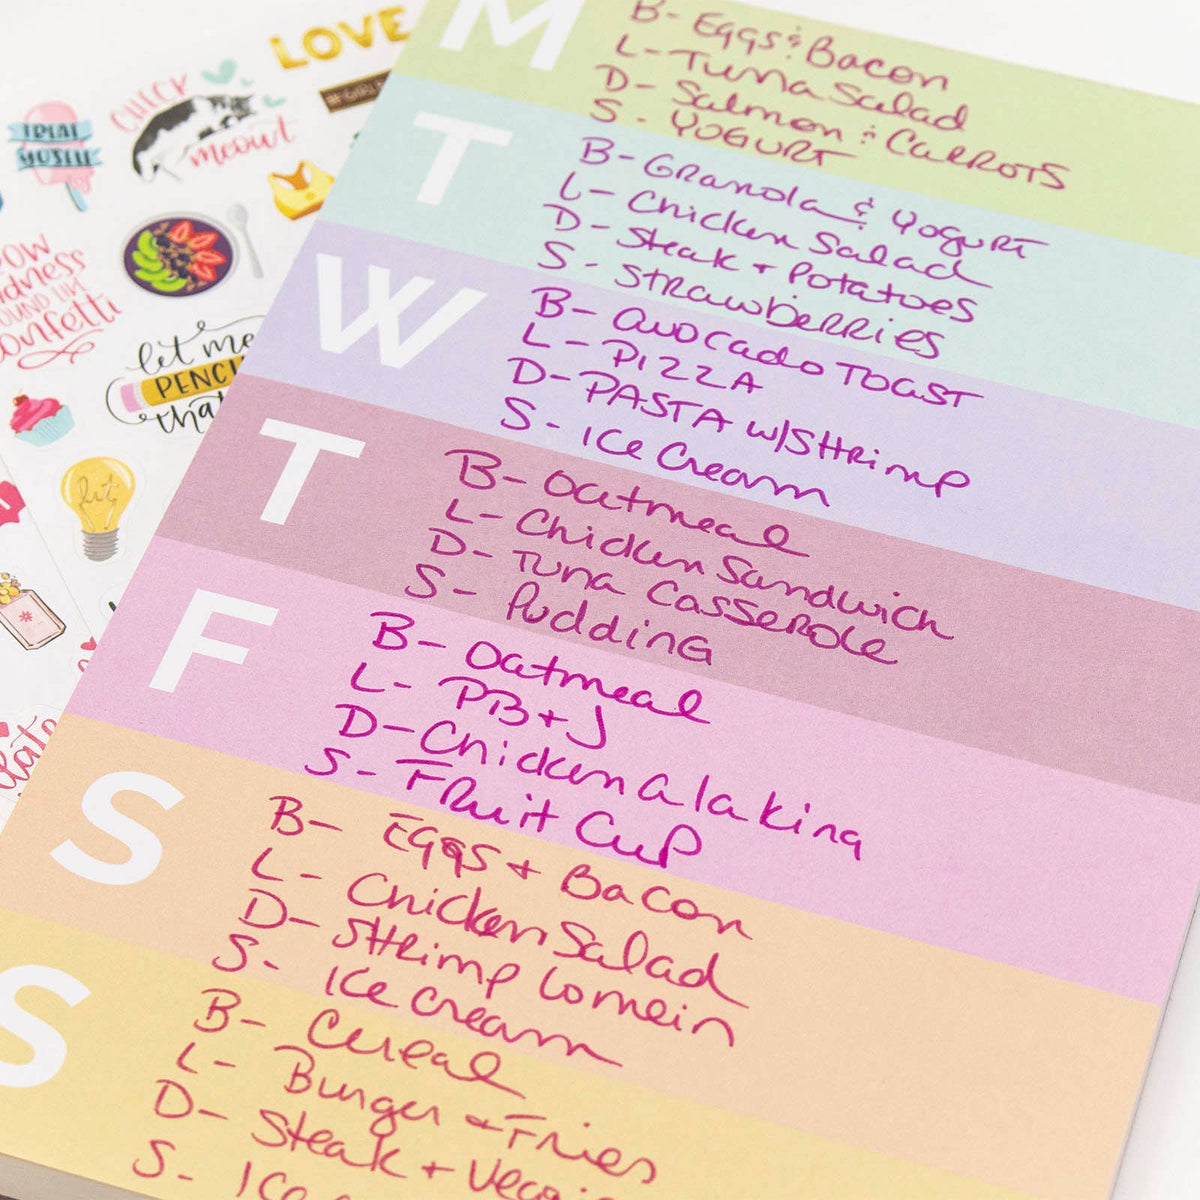 LOVE
CHECK
meowt
#GIRL
TRIAL
let me
PENCIL
that
confetti
lit
M
B- EGGS & Bacon
L- Tuna Salad
D- Salmon & CARROTS
S- YOGURT
T
B- GRanola & YogurT
L- Chicken Salad
D- Steak + Potatoes
S- STRawbeRRies
W
B- avocado Toast
L- PIZZA
D- PASTA w/SHRimp
S- Ice Cream
T
B- Oatmeal
L- Chicken Sandwich
D- Tuna CasseRole
S- PuddinG
F
B- Oatmeal
L- PB+J
D- Chicken a la king
S- FRuit Cup
S
B- EGGS + Bacon
L- Chicken Salad
D- SHRimp Lomein
S- Ice cream
S
B- Cereal
L- Burger + Fries
D- Steak +
S- Ice